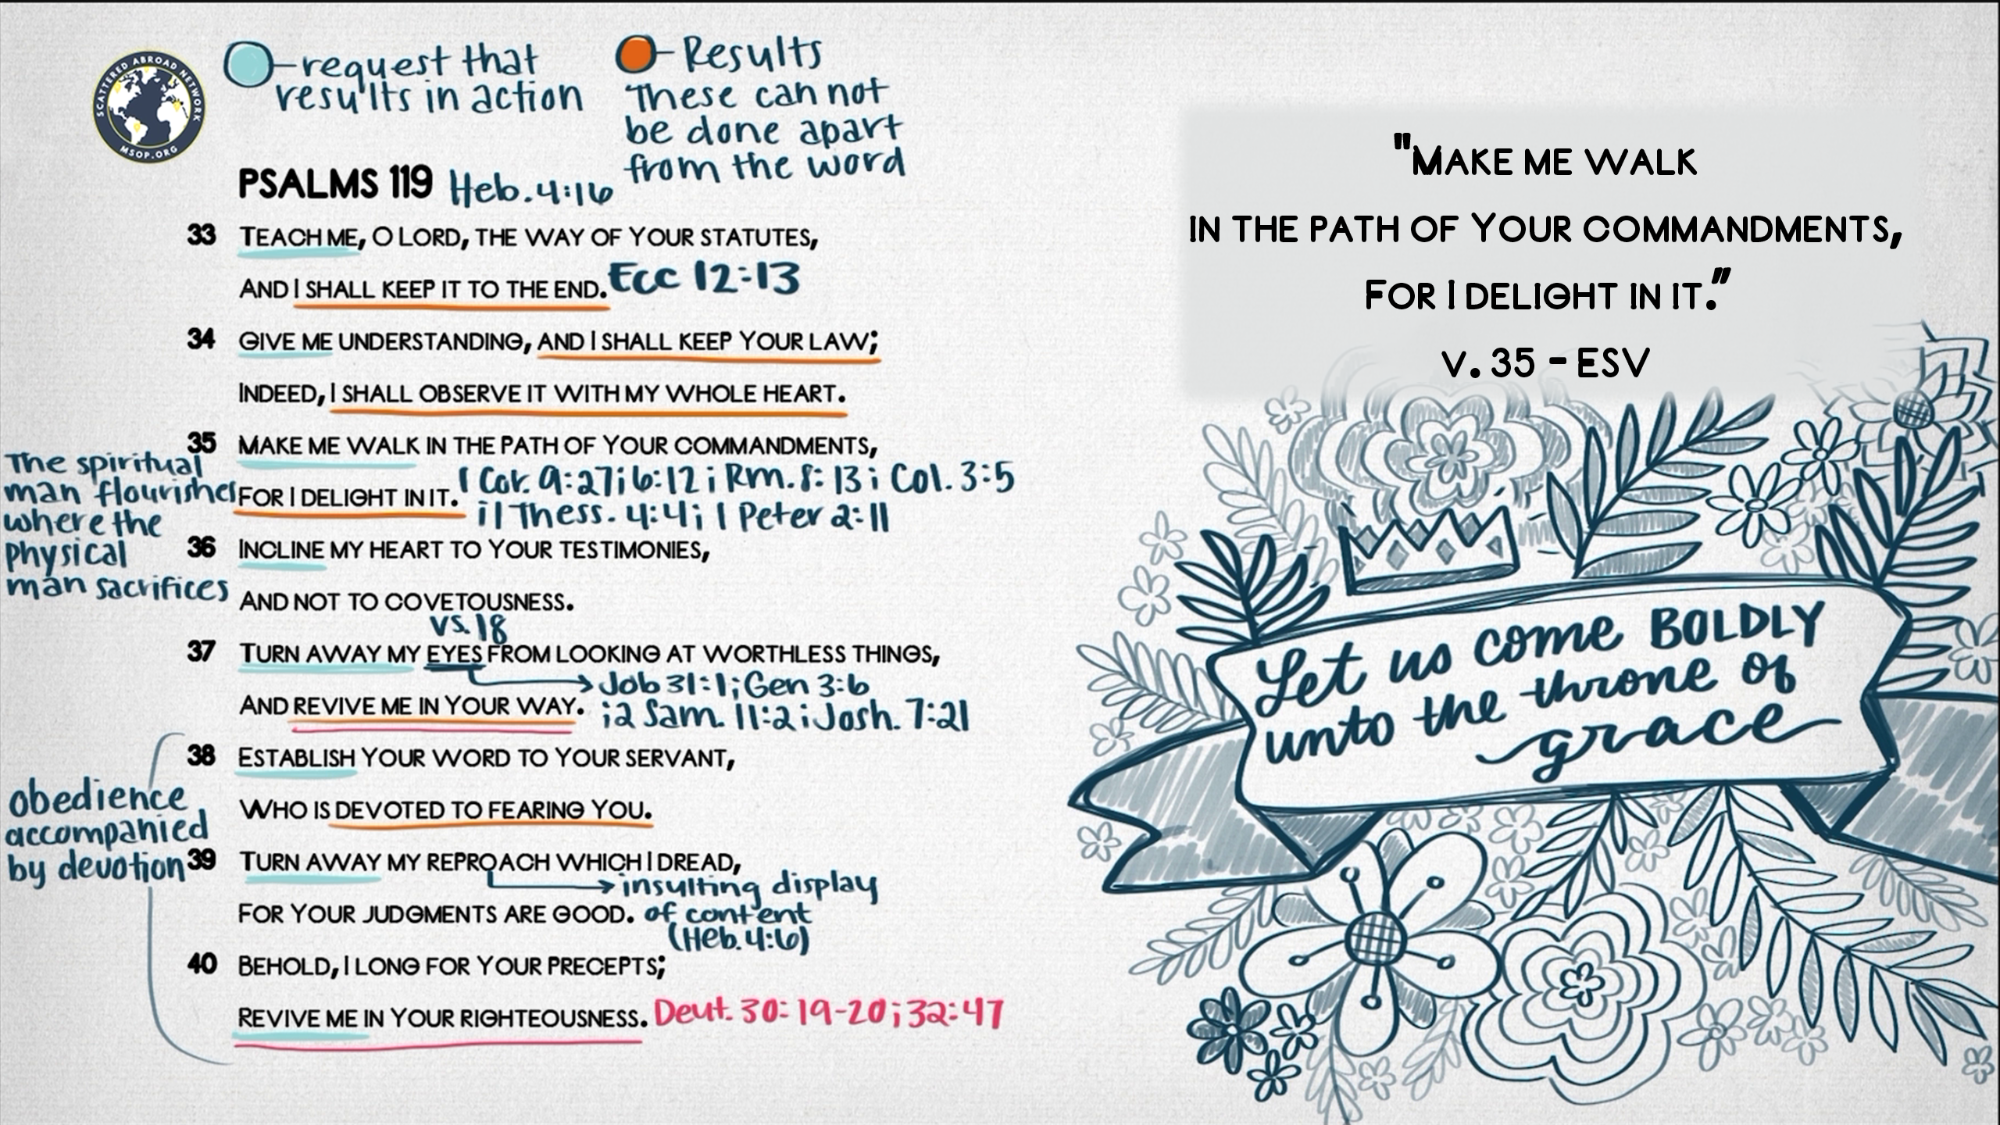 SCATTERED ABROAD NETWORK
MSOP.ORG
request that
results in action
Results
These can not
be done apart
from the word
PSALMS 119 Heb. 4:16
33 TEACH ME, O LORD, THE WAY OF YOUR STATUTES,
AND I SHALL KEEP IT TO THE END. Ecc 12:13
34 GIVE ME UNDERSTANDING, AND I SHALL KEEP YOUR LAW;
INDEED, I SHALL OBSERVE IT WITH MY WHOLE HEART.
35 MAKE ME WALK IN THE PATH OF YOUR COMMANDMENTS,
FOR I DELIGHT IN IT. 1 Cor. 9:27; 6:12; Rm. 8:13; Col. 3:5
; 1 Thess. 4:4; 1 Peter 2:11
The spiritual
man flourishes
where the
physical
man sacrifices
36 INCLINE MY HEART TO YOUR TESTIMONIES,
AND NOT TO COVETOUSNESS.
vs. 18
37 TURN AWAY MY EYES FROM LOOKING AT WORTHLESS THINGS,
Job 31:1; Gen 3:6
AND REVIVE ME IN YOUR WAY. ; 2 Sam. 11:2; Josh. 7:21
38 ESTABLISH YOUR WORD TO YOUR SERVANT,
WHO IS DEVOTED TO FEARING YOU.
obedience
accompanied
by devotion
39 TURN AWAY MY REPROACH WHICH I DREAD,
insulting display
FOR YOUR JUDGMENTS ARE GOOD. of content
(Heb. 4:6)
40 BEHOLD, I LONG FOR YOUR PRECEPTS;
REVIVE ME IN YOUR RIGHTEOUSNESS. Deut. 30:19-20; 32:47
"MAKE ME WALK
IN THE PATH OF YOUR COMMANDMENTS,
FOR I DELIGHT IN IT."
V. 35 - ESV
Let us come BOLDLY
unto the throne of
grace